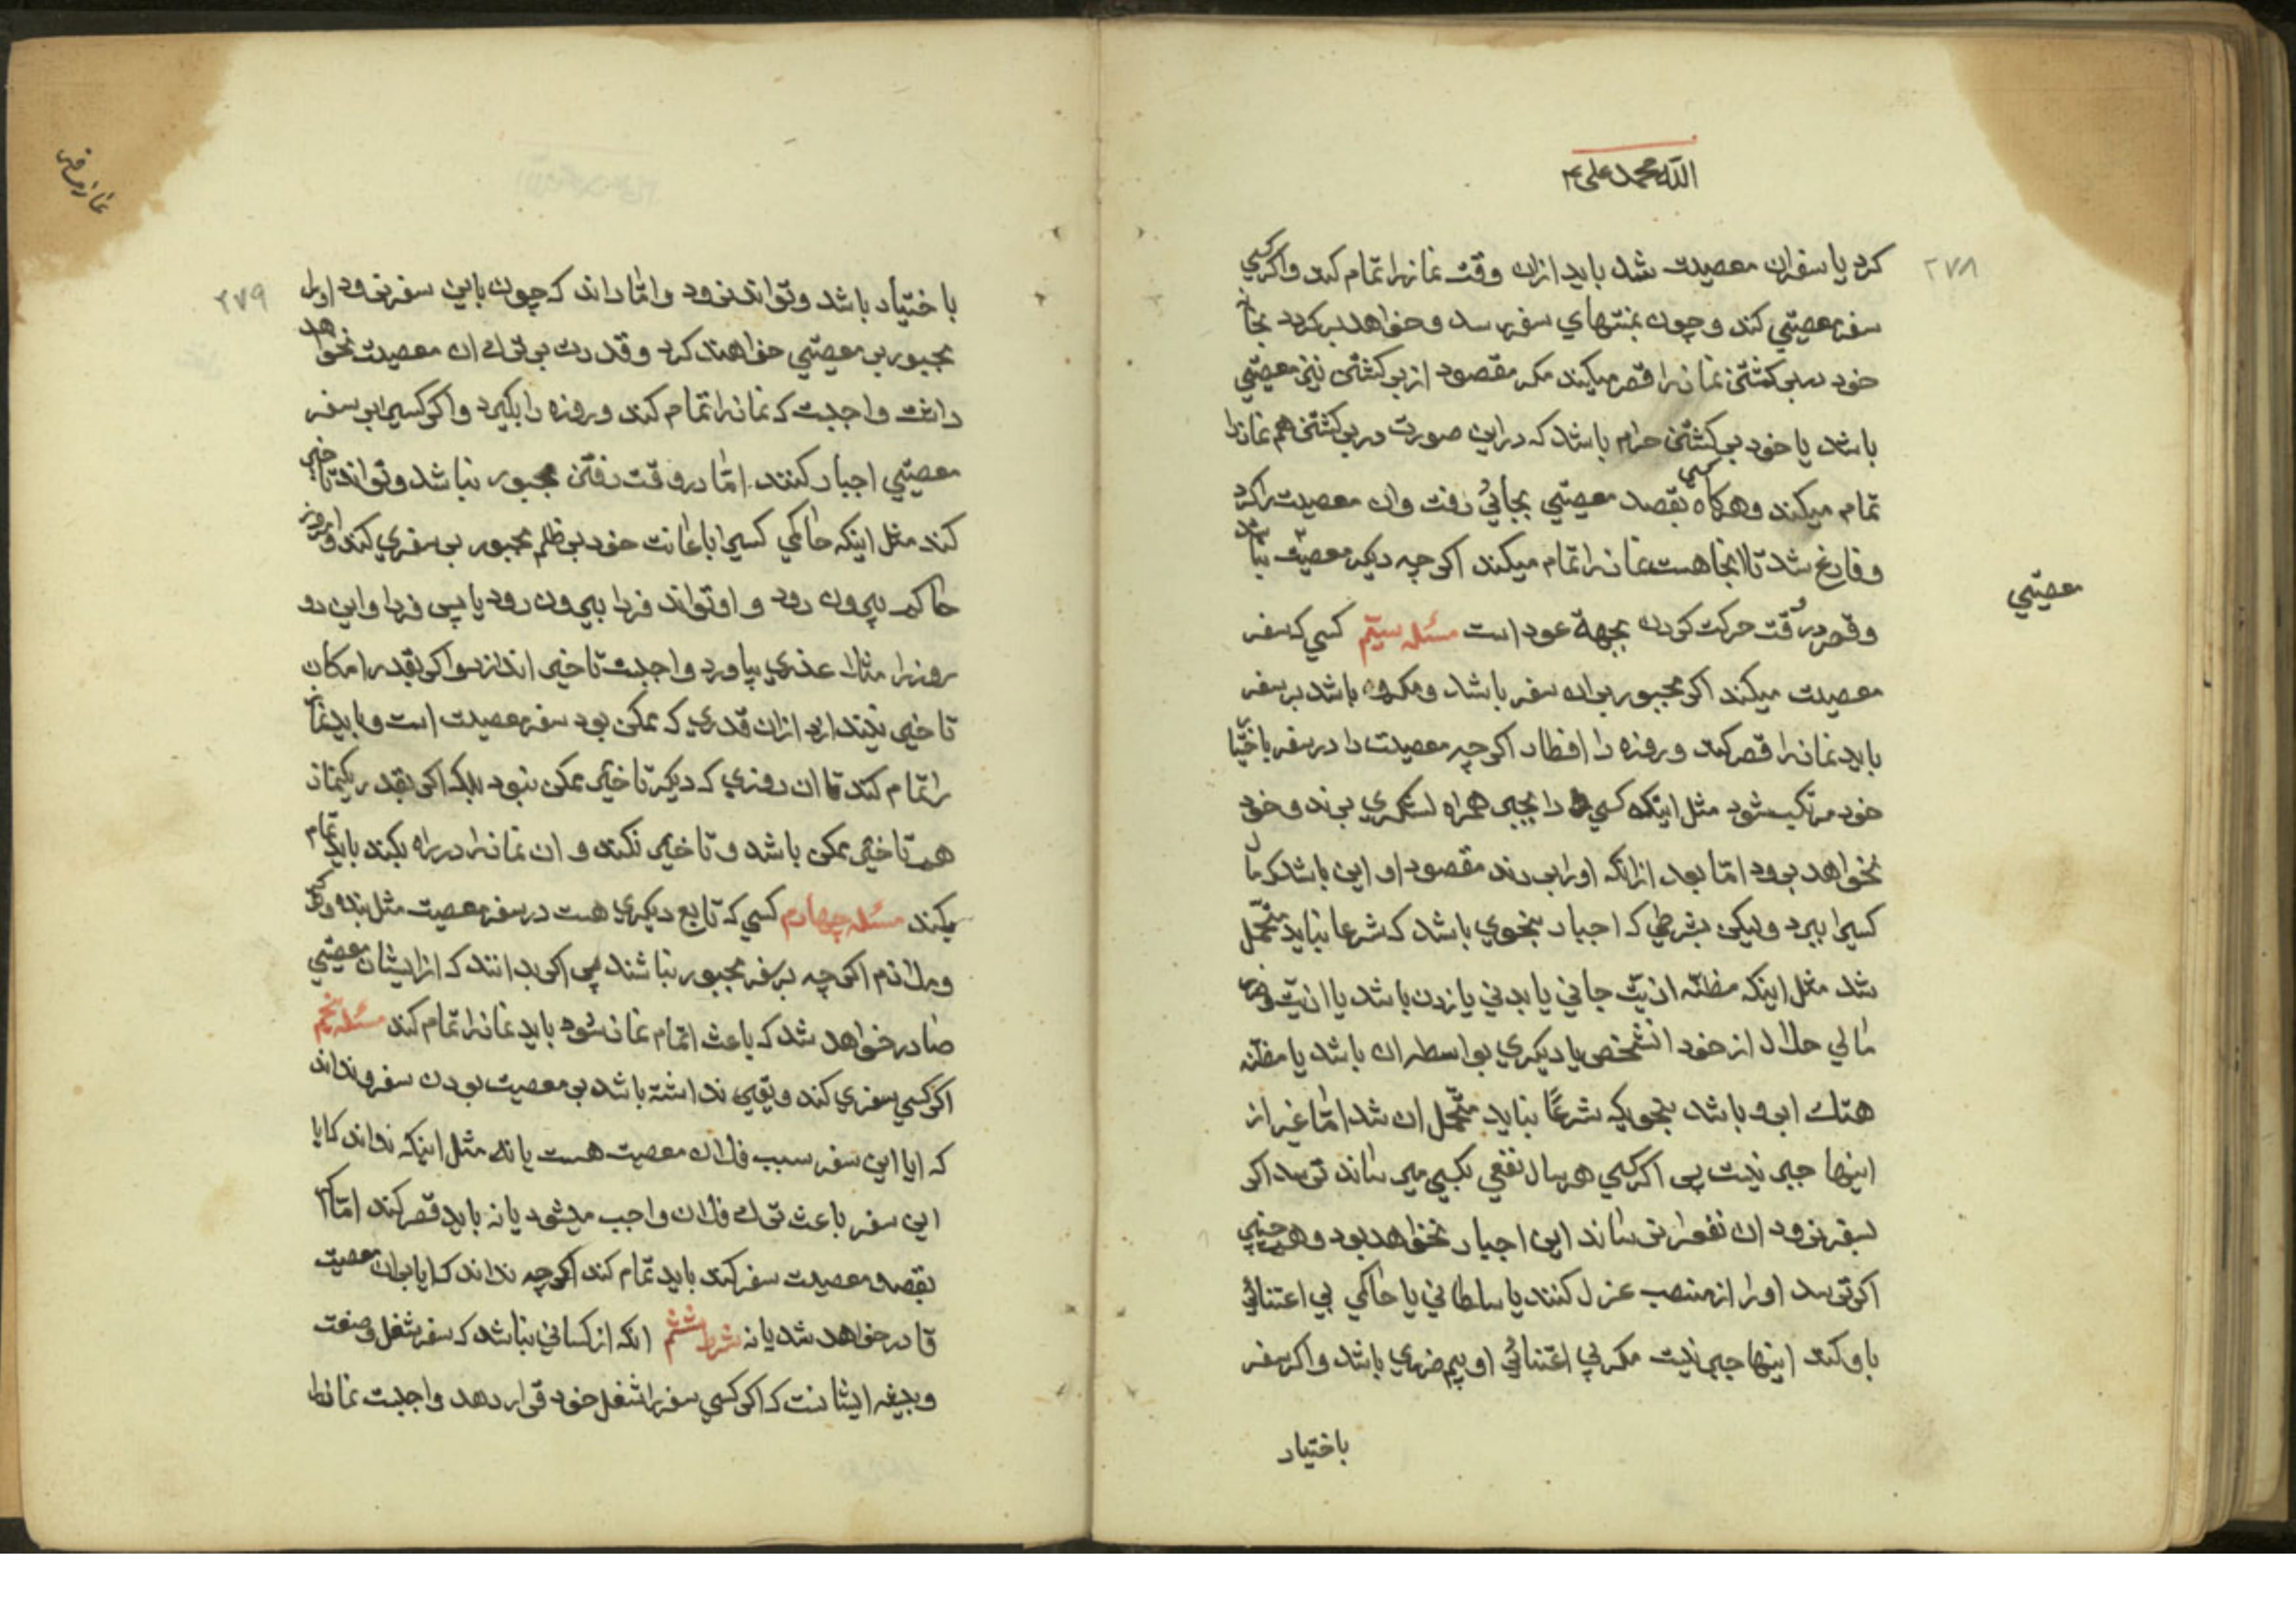 الله محمد علی
۲۷۸
کرد یا سفران معصیت شد باید ازان وقت نمازرا تمام کند واکرکسی
سفر معصیتی کند وچون بمنتهای سفر رسد وخواهد برکردد بخانه
خود در برکشتن نمازرا قصر میکند مکر مقصود از برکشتن نیز معصیتی
باشد یا خود برکشتن حرام باشد که دراین صورت در برکشتن هم نمازرا
تمام میکند وهرکاه کسی بقصد معصیتی بجائی رفت وان معصیت راکرد
وفارغ شد تا انجا هست نمازرا تمام میکند اکرچه دیکر معصیت نباشد
وقصر در وقت حرکت کردن بجهة عود است مسئله سیّم کسی که سفر
معصیتی
معصیت میکند اکر مجبور بران سفر باشد ومکره باشد بر سفر
باید نمازرا قصر کند وروزه را افطار اکرچه معصیت را در سفر باختیار
خود مرتکب شود مثل اینکه کسی را بجبر همراه لشکری برند وخود
نخواهد برود امّا بعد ازانکه اورا بردند مقصود او این باشد که مال
کسیرا ببرد ولیکن بشرطی که اجبار بنحوی باشد که شرعا نباید متحمّل
شد مثل اینکه مظنّه اذیّت جانی یا بدنی یا زدن باشد یا اذیّت وضرر
مالی حلال از خود انشخص یا دیکری بواسطه ان باشد یا مظنّه
هتك ابرو باشد بنحویکه شرعًا نباید متحمّل ان شد امّا غیر از
اینها جبر نیست پس اکر کسی هر سال نفعی بکسی میرساند ترسد اکر
بسفر نرود ان نفعرا نرساند این اجبار نخواهد بود وهمچنین
اکر ترسد اورا از منصب عزل کنند یا سلطانی یا حاکمی بی اعتنائی
باو کند اینها جبر نیست مکر بی اعتنائی او بیم ضرری باشد واکر سفر
باختیار
نماز مسافر
۲۷۹
باختیار باشد وتواند نرود وامّا داند که چون باین سفر برود اورا
مجبور بر معصیتی خواهند کرد وقدرت بر ترك ان معصیت نخواهد
داشت واجبست که نمازرا تمام کند وروزه را بکیرد واکر کسیرا بر سفر
معصیتی اجبار کنند امّا در وقت رفتن مجبور نباشد وتواند تاخیر
کند مثل اینکه حاکمی کسیرا باعانت خود بر ظلم مجبور بر سفری کند وامروز
حاکم بیرون رود واو تواند فردا بیرون رود یا پس فردا واین دو
روزرا مثلا عذری بیاورد واجبست تاخیر اندازد واکر بقدر امکان
تاخیر نیندازد ازان قدری که ممکن بود سفر معصیت است وباید نماز
را تمام کند تا ان روزی که دیکر تاخیر ممکن نبود بلکه اکر بقدر یکنماز
هم تاخیر ممکن باشد وتاخیر نکند وان نمازرا در راه بکند باید تمام
بکند مسئله چهارم کسی که تابع دیکری هست در سفر معصیت مثل بنده ونوکر
وملازم اکرچه بر سفر مجبور نباشند پس اکر بدانند که ازایشان معصیتی
صادر خواهد شد که باعث اتمام نماز شود باید نمازرا تمام کند مسئله پنجم
اکر کسی سفری کند ویقین نداشته باشد بر معصیت بودن سفر ونداند
که ایا این سفر سبب فلان معصیت هست یا نه مثل اینکه نداند که ایا
این سفر باعث ترك فلان واجب میشود یا نه باید قصر کند امّا اکر
بقصد معصیت سفر کند باید تمام کند اکرچه نداند که ایا بران معصیت
قادر خواهد شد یا نه شرط ششم انکه از کسانی نباشد که سفر شغل وصنعت
وبیشه ایشانست که اکر کسی سفررا شغل خود قرار دهد واجبست نمازرا